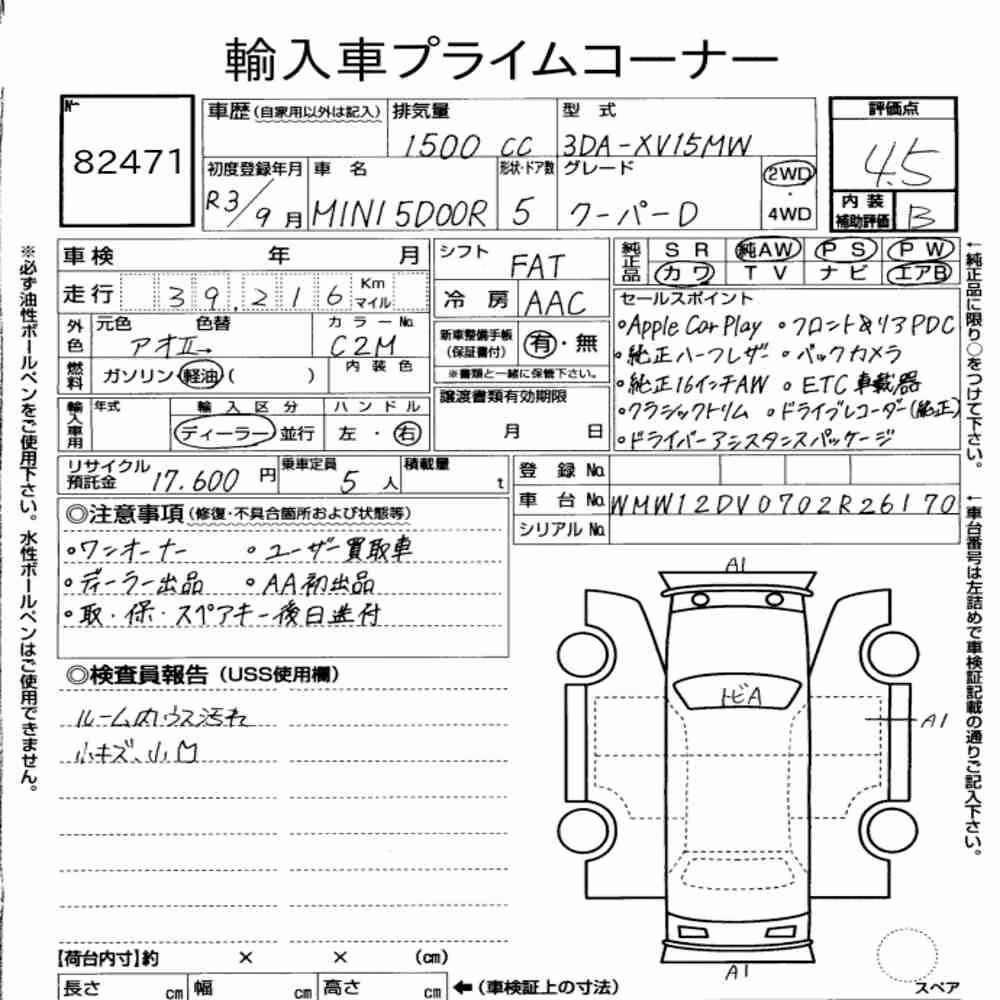 輸入車プライムコーナー
No.
82471
車歴(自家用以外は記入) 排気量 1500 cc 型式 3DA-XV15MW
評価点 4.5
内装補助評価 B
初度登録年月 R3/9月 車名 MINI 5DOOR 形状・ドア数 5 グレード クーパーD 2WD・4WD
車検 年 月
走行 39.216 Km マイル
外色 元色 アオII 色替 カラーNo. C2M
燃料 ガソリン 軽油 ( ) 内装色
輸入車用 年式 輸入区分 ディーラー 並行 ハンドル 左・右
シフト FAT
冷房 AAC
新車整備手帳(保証書付) 有・無
※書類と一緒に保管下さい。
譲渡書類有効期限
月 日
純正品 SR 純AW PS PW
カワ TV ナビ エアB
セールスポイント
•Apple Car Play •フロント&リアPDC
•純正ハーフレザー •バックカメラ
•純正16インチAW •ETC車載器
•クラシックトリム •ドライブレコーダー(純正)
•ドライバーアシスタンスパッケージ
リサイクル預託金 17.600 円 乗車定員 5 人 積載量 t
登録No.
車台No. WMW12DV0702R26170
シリアルNo.
◎注意事項(修復・不具合箇所および状態等)
•ワンオーナー •ユーザー買取車
•ディーラー出品 •AA初出品
•取・保・スペアキー後日送付
◎検査員報告(USS使用欄)
ルーム内ウス汚れ
小キズ、小凹
A1
トビA
A1
A1
スペア
【荷台内寸】約 × × (cm)
長さ cm 幅 cm 高さ cm ←(車検証上の寸法)
※必ず油性ボールペンをご使用下さい。水性ボールペンはご使用できません。
←純正品に限り○をつけて下さい。
←車台番号は左詰めで車検証記載の通りご記入下さい。